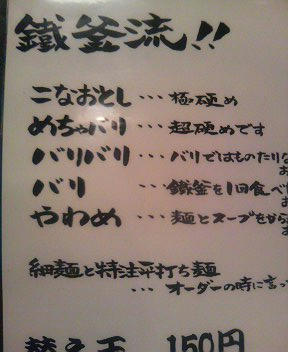 鐵釜流!!
こなおとし・・・極硬め
めちゃバリ・・・超硬めです
バリバリ・・・バリではものたりな
バリ・・・鐵釜を1回食べ
やわめ・・・麺とスープをから
細麺と特注平打ち麺
・・・オーダーの時に言っ
替え玉 150円